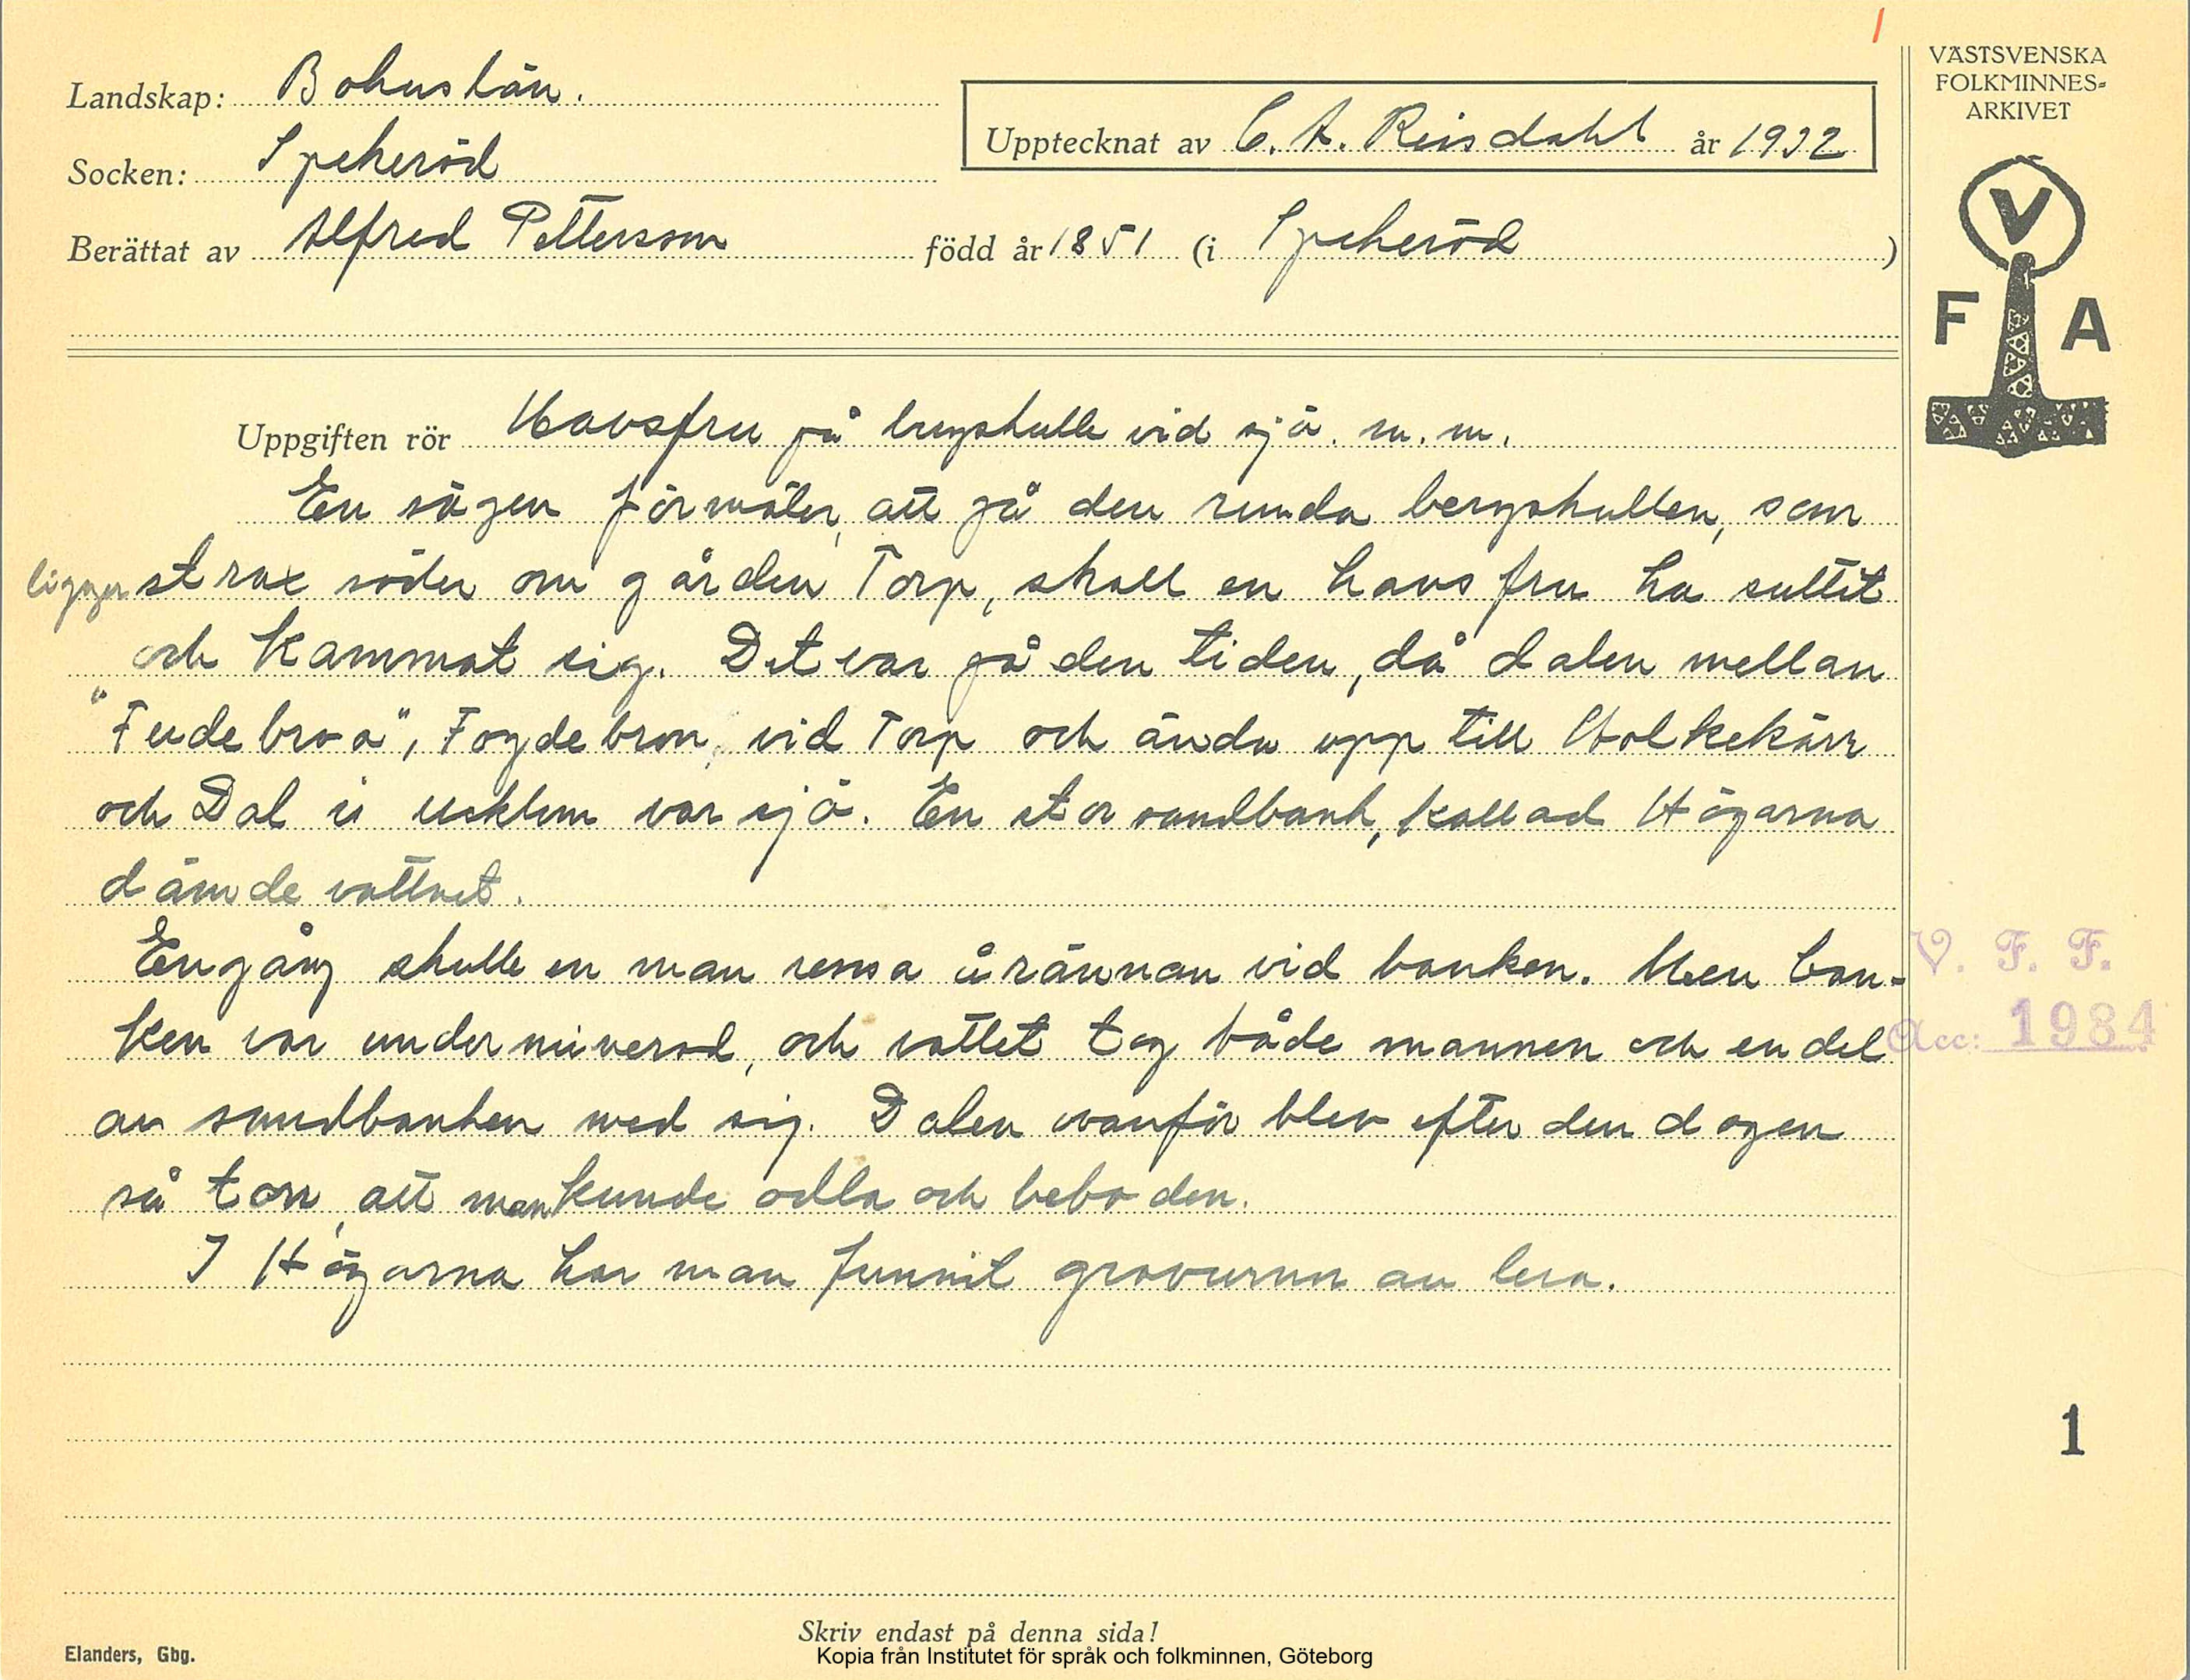 VÄSTSVENSKA
FOLKMINNES=
ARKIVET
V
F A
Landskap: Bohuslän.
Upptecknat av C. A. Reisdahl år 1932
Socken: Spekeröd
Berättat av Alfred Pettersson född år 1851 (i Spekeröd)
Uppgiften rör Havsfru på bergskulle vid sjö. m. m.
En sägen förmäler, att på den runda bergskullen, som
ligger strax söder om gården Torp, skall en havsfru ha suttit
och kammat sig. Det var på den tiden, då dalen mellan
"Fudebroa", Fogdebron, vid Torp och ända upp till Holkekärr
och Dal i Ucklum var sjö. En stor sandbank, kallad Högarna
dämde vattnet.
En gång skulle en man rensa årännan vid banken. Men ban-
ken var underminerad, och vattet tog både mannen och en del
av sandbanken med sig. Dalen ovanför blev efter den dagen
så torr, att man kunde odla och bebo den.
I Högarna har man funnit gravurnor av lera.
V. F. F.
Acc: 1984
1
Skriv endast på denna sida!
Elanders, Gbg.
Kopia från Institutet för språk och folkminnen, Göteborg